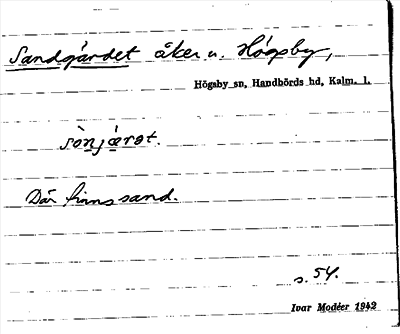 Sandgärdet åker u. Högsby,
Högsby sn, Handbörds hd, Kalm. l.
sònjárət.
Där finns sand.
s. 54.
Ivar Modéer 1942